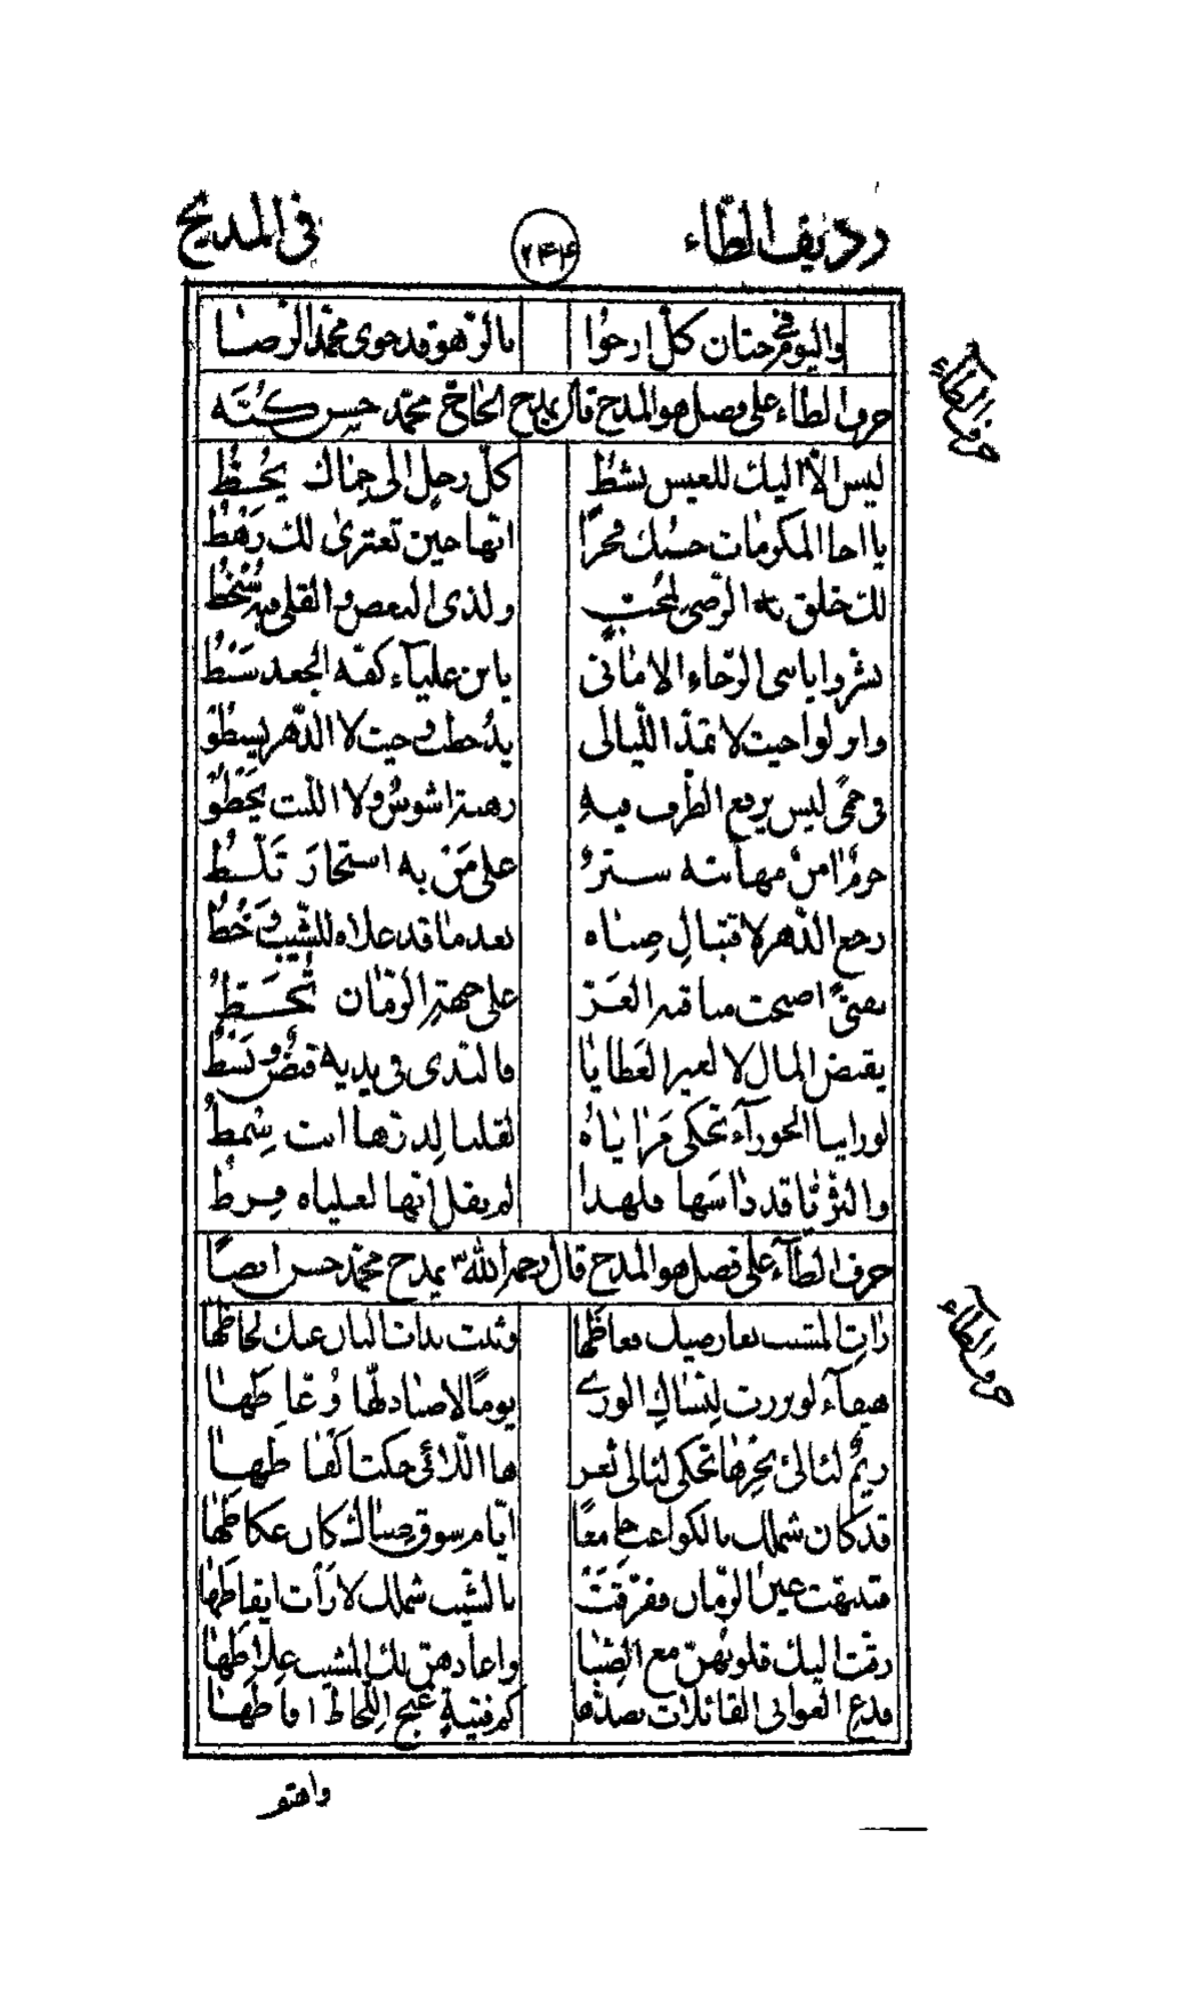 رديف الطاء ٢٤٤ في المديح
واليوم في جنان كل ارخوا بالزهو قد حوى محمد الرضا
حرف الطاء على فصل هو المدح قال يمدح الحاج محمد حسن كبّه
حرف الطاء
ليس الا اليك للعيس نشط كل رحل الى حماك يحط
يا اخا المكرمات حسبك فخرا انها حين تعتزى لك رهط
لك خلق به الرضى لمحب ولذى البغض والقلى فيه سخط
بشر وا يا بني الرجاء الاماني يا بن علياء كفه الجعد سبط
وانزلوا حيث لا تمد الليالى يد خطب وحيث لا الدهر يسطو
في حمى ليس يرفع الطرف فيه رهبة اشوس ولا الليث يخطو
حرم من مهابته ستر على من به استجار تلط
رجع الدهر لاقتبال صباه بعد ما قد علاه للشيب وخط
بفتى اصبحت مناقبه الغر على جبهة الزمان تخط
يقبض المال لا لغير العطايا فالندى في يديه قبض وبسط
لو راينا الجوزاء تحكى مزاياه لقلنا لدرها انت سمط
والثريا قد داسها فلهذا لم يقل انها لعلياه قرط
حرف الطاء على فصل هو المدح قال رحمه الله يمدح محمد حسن ايضا
حرف الطاء
ذات المشيب بعارضيك فعاظها وثنت بذات البان عنك لحاظها
هيفاء لو برزت لنساك الورى يوما لاصبا دلها وعاظها
ريم لئالئ نحرها تحكى لئالى ثغرها اللائى حكت الفاظها
قد كان شملك بالكواعب جامعا ايام سوق صباك كان عكاظها
فتنبهت عين الزمان ففرقت بالشيب شملك لا رأت ايقاظها
رقت اليك قلوبهن مع الصبا واعادهن لك المشيب غلاظها
فدع الغوانى القاتلات بصدها كم فتية غنج اللحاظ افاظها
واهتف